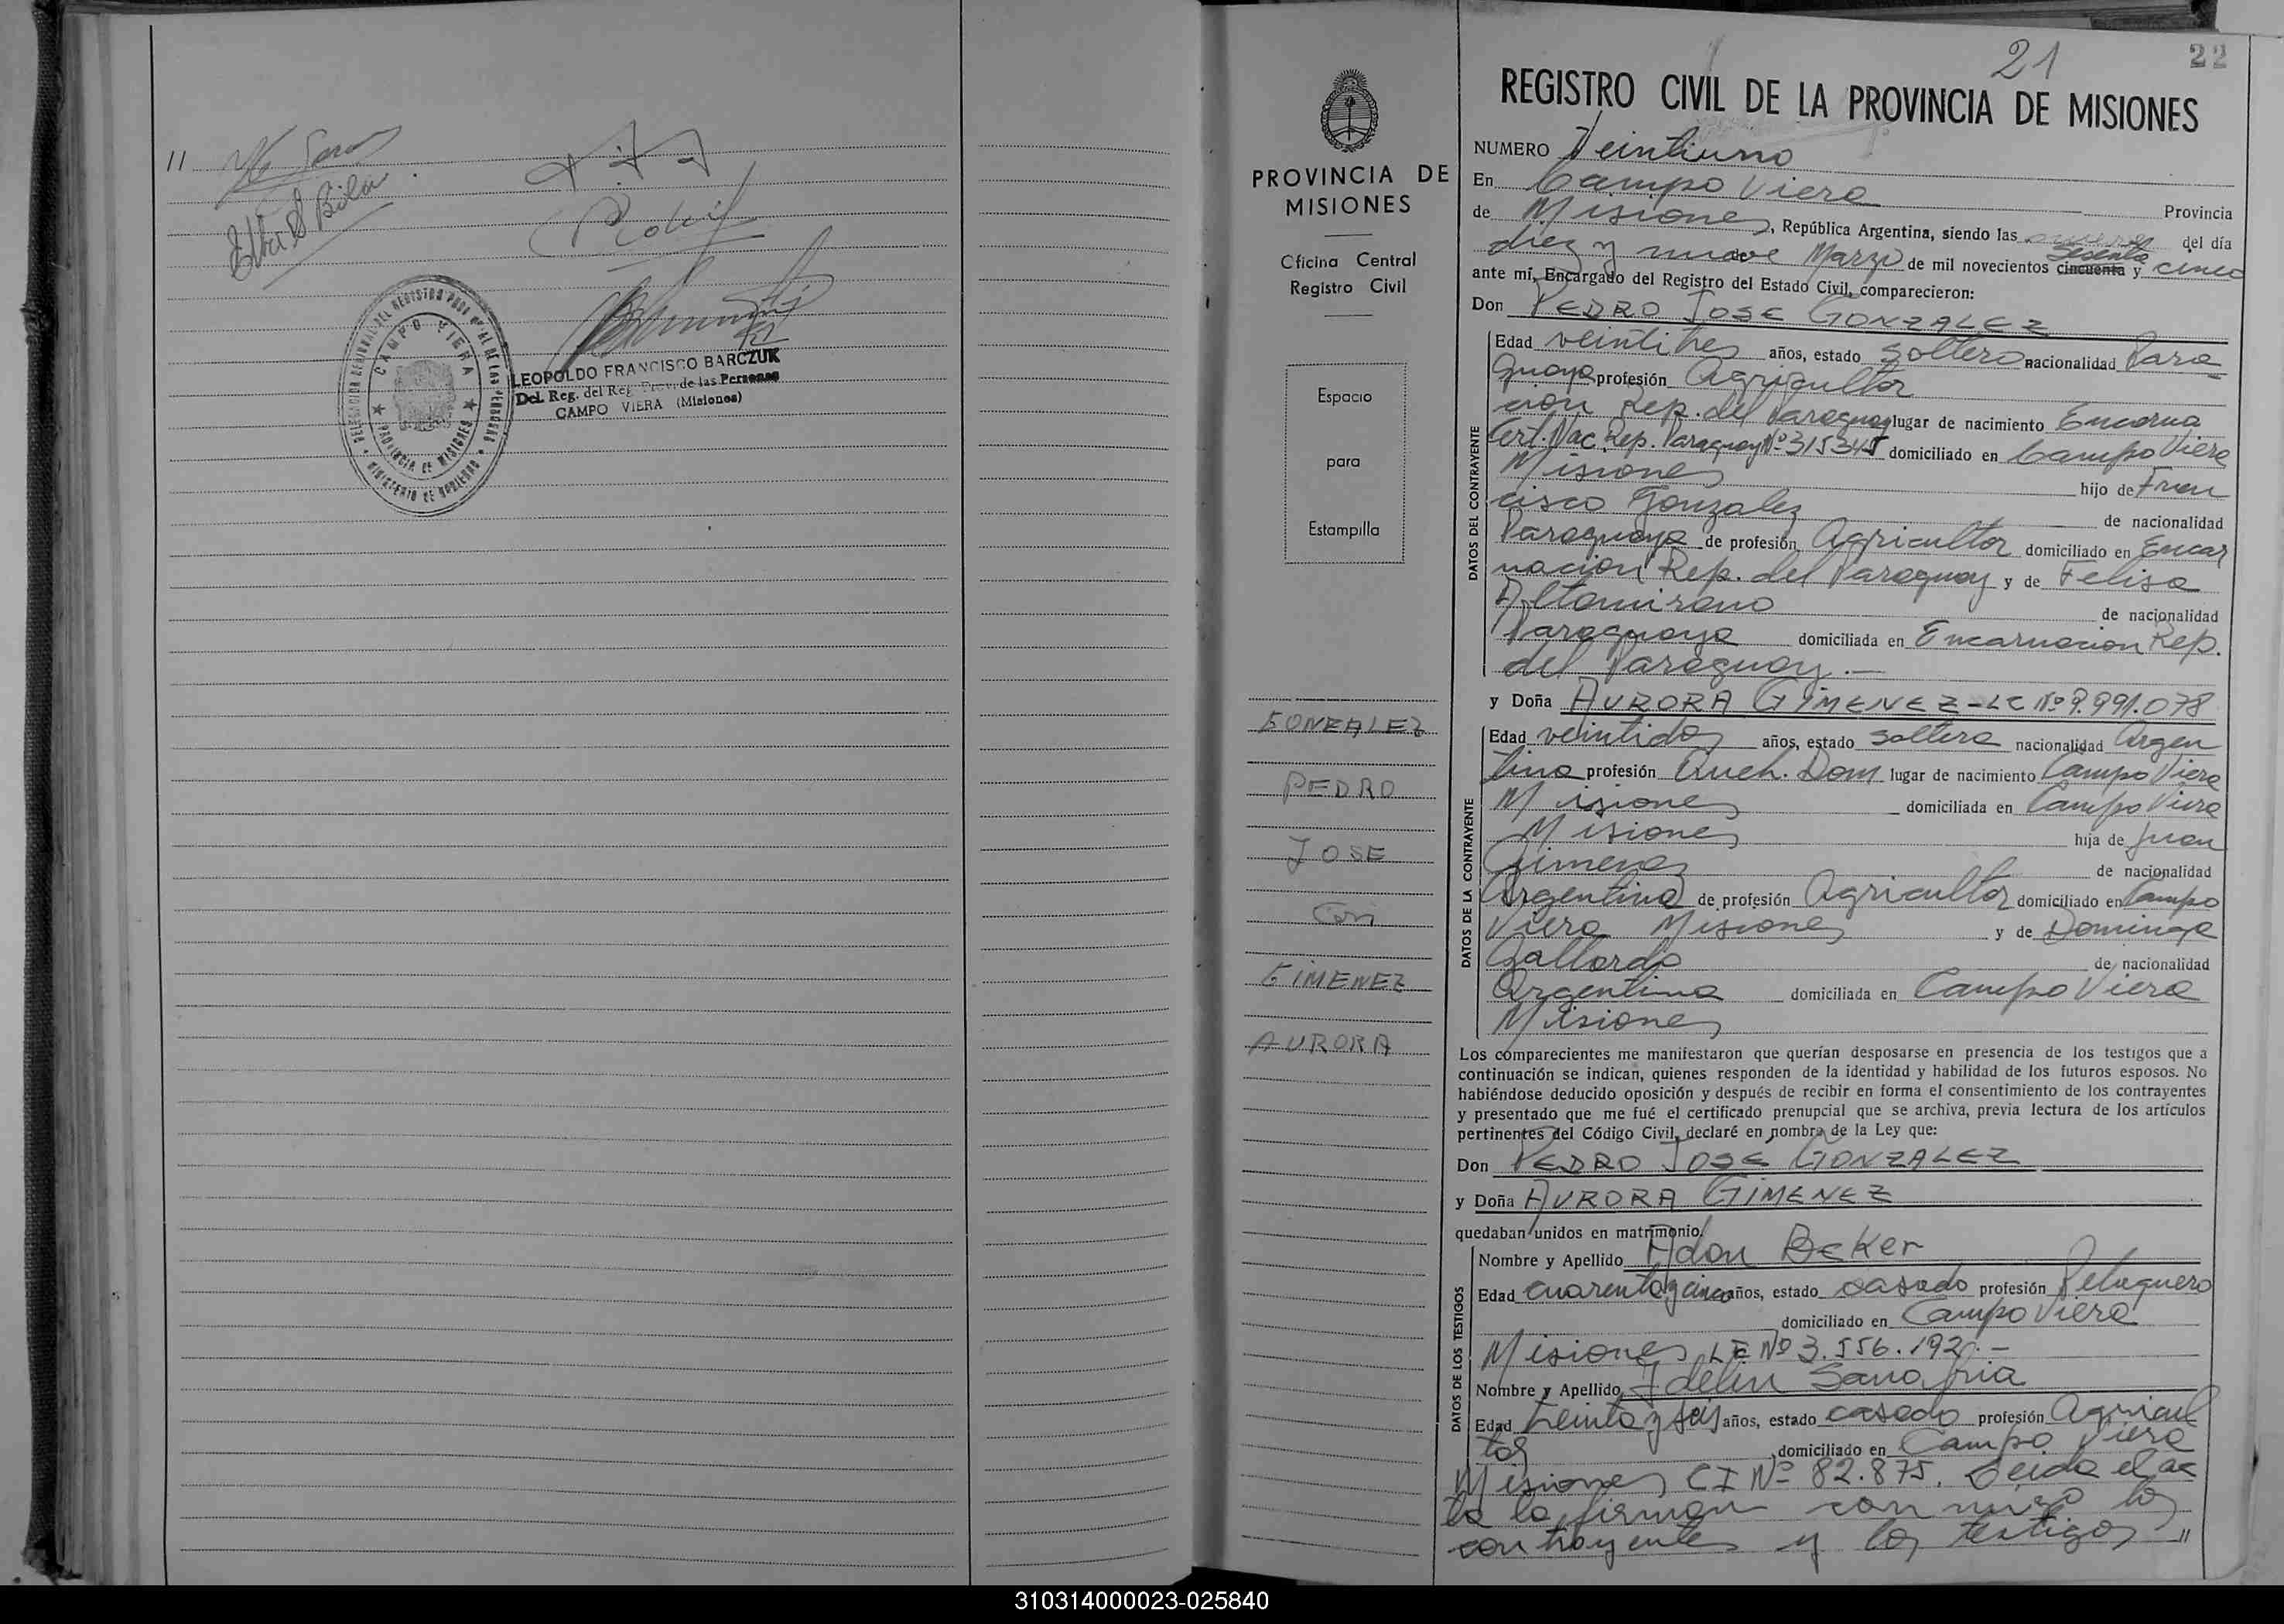 11
Elba S Bila
DELEGACION REGIONAL DEL REGISTRO PROVINCIAL DE LAS PERSONAS
CAMPO VIERA
PROVINCIA DE MISIONES
MINISTERIO DE GOBIERNO
LEOPOLDO FRANCISCO BARCZUK
Del. Reg. del Reg. Prov. de las Personas
CAMPO VIERA (Misiones)
PROVINCIA DE
MISIONES
Oficina Central
Registro Civil
Espacio
para
Estampilla
GONZALEZ
PEDRO
JOSE
Con
GIMENEZ
AURORA
21 22
REGISTRO CIVIL DE LA PROVINCIA DE MISIONES
NUMERO Veintiuno
En Campo Viera Provincia
de Misiones, República Argentina, siendo las del día
diez y nueve Marzo de mil novecientos cincuenta sesenta y cinco
ante mí, Encargado del Registro del Estado Civil, comparecieron:
Don PEDRO JOSE GONZALEZ
Edad veintitres años, estado soltero nacionalidad Para
guaya profesión Agricultor
lugar de nacimiento Encarna
cion Rep. del Paraguay
Cert. Nac. Rep. Paraguay Nº 315345 domiciliado en Campo Viera
Misiones hijo de Fran
cisco Gonzalez de nacionalidad
Paraguaya de profesión Agricultor domiciliado en Encar
nacion Rep. del Paraguay y de Felisa
Altamirano de nacionalidad
Paraguaya domiciliada en Encarnacion Rep.
del Paraguay.-
y Doña AURORA GIMENEZ - LC Nº 9.991.078
Edad veintidos años, estado soltera nacionalidad Argen
tina profesión Queh. Dom lugar de nacimiento Campo Viera
Misiones domiciliada en Campo Viera
Misiones hija de Juan
Gimenez de nacionalidad
Argentina de profesión Agricultor domiciliado en Campo
Viera Misiones y de Dominga
Gallardo de nacionalidad
Argentina domiciliada en Campo Viera
Misiones
DATOS DEL CONTRAYENTE
DATOS DE LA CONTRAYENTE
Los comparecientes me manifestaron que querían desposarse en presencia de los testigos que a
continuación se indican, quienes responden de la identidad y habilidad de los futuros esposos. No
habiéndose deducido oposición y después de recibir en forma el consentimiento de los contrayentes
y presentado que me fué el certificado prenupcial que se archiva, previa lectura de los artículos
pertinentes del Código Civil, declaré en nombre de la Ley que:
Don PEDRO JOSE GONZALEZ
y Doña AURORA GIMENEZ
quedaban unidos en matrimonio.
DATOS DE LOS TESTIGOS
Nombre y Apellido Adan Beker
Edad cuarenta y cinco años, estado casado profesión Peluquero
domiciliado en Campo Viera
Misiones LE Nº 3.556.192.-
Nombre y Apellido Idelin Sanabria
Edad treinta y seis años, estado casado profesión Agricul
tor domiciliado en Campo Viera
Misiones CI Nº 82.875. Leida el ac
ta la firman con migo los
contrayentes y los testigos 11
310314000023-025840